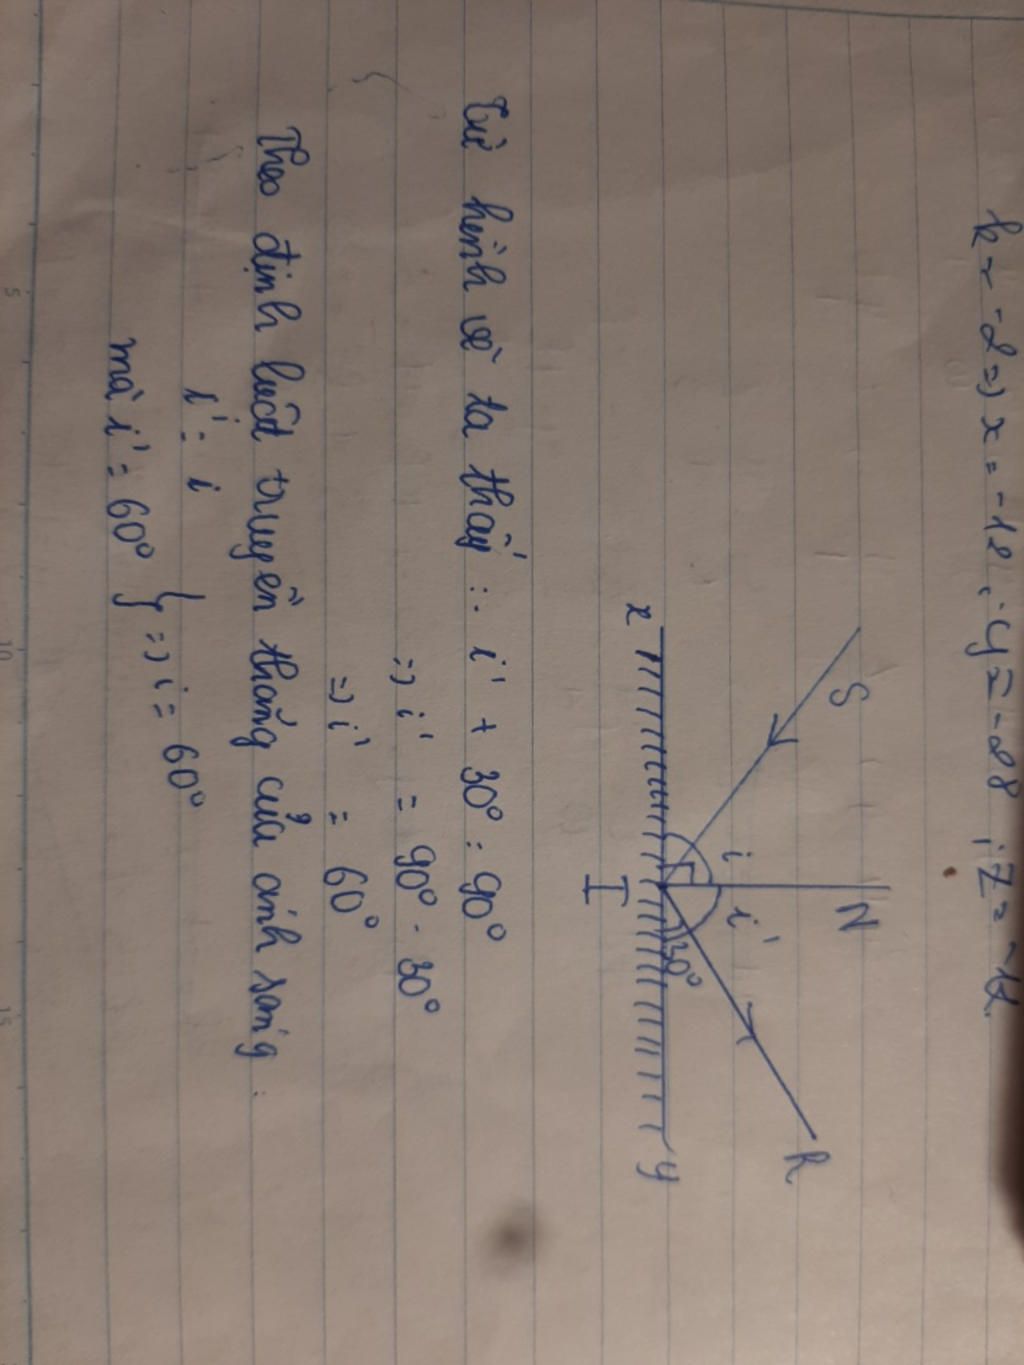 k = -2 => x = -18 ; y = -28 ; z =
S
N
R
i
i'
30°
x
I
y
Từ hình vẽ ta thấy : i' + 30° = 90°
=> i' = 90° - 30°
=> i' = 60°
Theo định luật truyền thẳng của ánh sáng :
i' = i
mà i' = 60° } => i = 60°
5
10
15